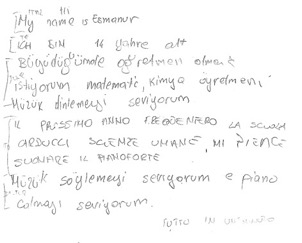 My name is Esmanur
ICH BIN 14 Jahre alt
Büyüdüğümde öğretmen olmak
istiyorum matematik, kimya öğretmeni
Müzük dinlemeyi seviyorum
IL PROSSIMO ANNO FREQUENTERÒ LA SCUOLA
CARDUCCI SCIENZE UMANE, MI PIACE
SUONARE IL PIANOFORTE
Müzük söylemeyi seviyorum e piano
Çalmayı seviyorum.
TUTTO IN UN